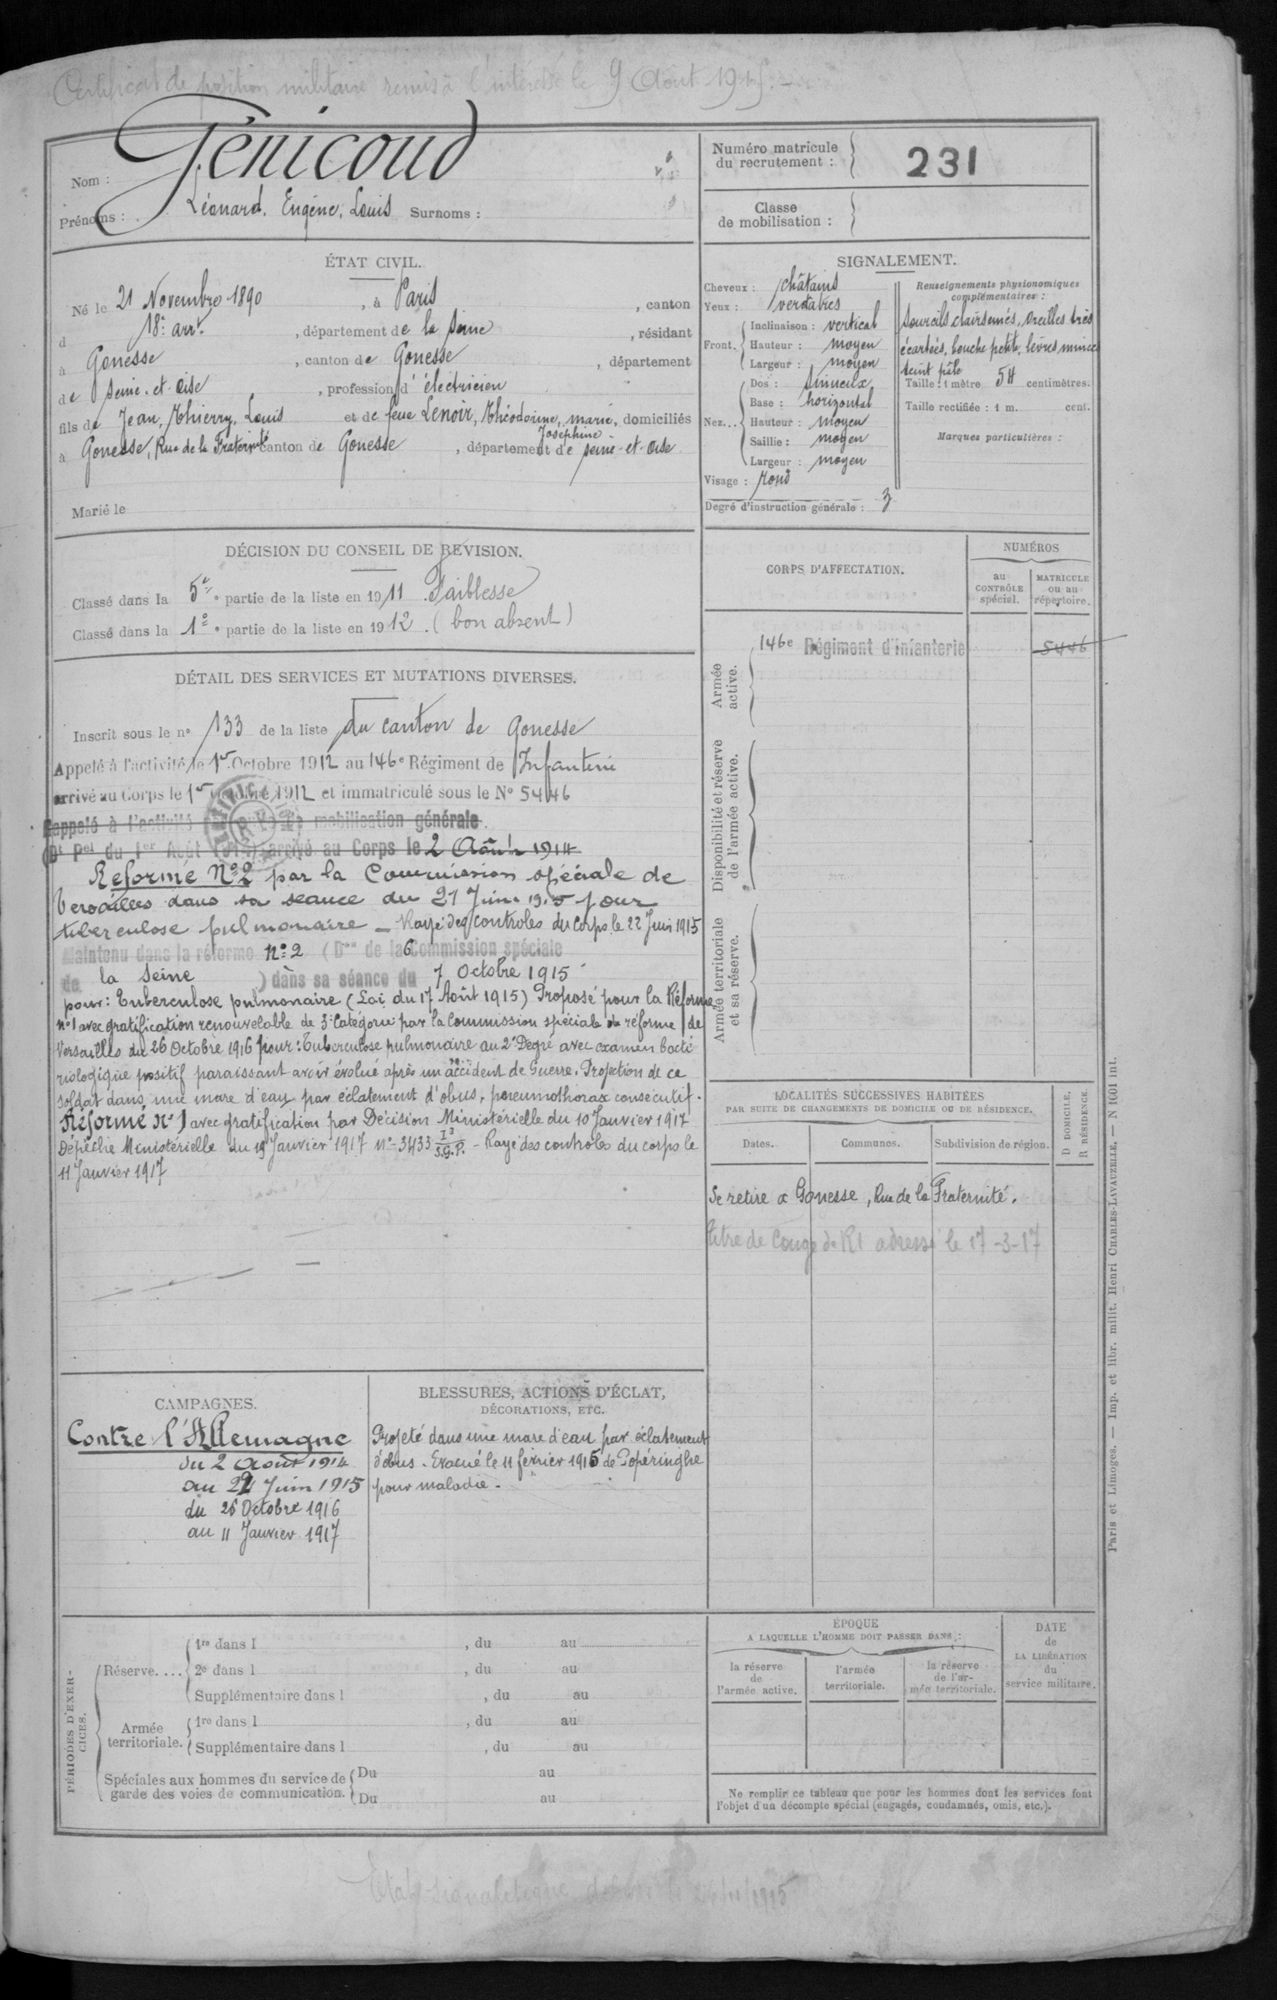 Certificat de position militaire remis à l'intéressé le 9 Août 1915.
Nom : Génicoud
Prénoms : Léonard, Eugène, Louis Surnoms :
Numéro matricule du recrutement : 231
Classe de mobilisation :
ÉTAT CIVIL.
Né le 21 Novembre 1890, à Paris, canton
d 18e arrt., département de la Seine, résidant
à Gonesse, canton de Gonesse, département
de Seine-et-Oise, profession d'électricien
fils de Jean, Thierry, Louis et de feue Lenoir, Théodorine, marie, Joséphine, domiciliés
à Gonesse, Rue de la Fraternité canton de Gonesse, département de Seine-et-Oise
Marié le
SIGNALEMENT.
Cheveux : châtains
Yeux : verdâtres
Front. Inclinaison : vertical
Hauteur : moyen
Largeur : moyen
Nez... Dos : sinueux
Base : horizontal
Hauteur : moyen
Saillie : moyen
Largeur : moyen
Visage : rond
Degré d'instruction générale : 3
Renseignements physionomiques complémentaires :
Sourcils clairsemés, oreilles très
écartées, bouche petite, lèvres minces
teint pâle
Taille : 1 mètre 54 centimètres.
Taille rectifiée : 1 m. cent.
Marques particulières :
DÉCISION DU CONSEIL DE REVISION.
Classé dans la 5e partie de la liste en 1911 Faiblesse
Classé dans la 1e partie de la liste en 1912. (bon absent)
DÉTAIL DES SERVICES ET MUTATIONS DIVERSES.
Inscrit sous le no 133 de la liste du canton de Gonesse
Appelé à l'activité le 1er Octobre 1912 au 146e Régiment de Infanterie
arrivé au Corps le 1er Octobre 1912 et immatriculé sous le No 5446
Rappelé à l'activité mobilisation générale.
(Dt Pel du 1er Août 1914) arrivé au Corps le 2 Août 1914
Réformé No 2 par la Commission spéciale de
Versailles dans sa séance du 21 Juin 1915 pour
tuberculose pulmonaire - Rayé des controles du Corps le 22 Juin 1915
Maintenu dans la réforme No 2 (Don de la Commission spéciale
de la Seine) dans sa séance du 7 Octobre 1915
pour : Tuberculose pulmonaire (Loi du 17 Août 1915) Proposé pour la Réforme
no 1 avec gratification renouvelable de 5e Catégorie par la Commission spéciale de réforme de
Versailles du 26 Octobre 1916 pour : Tuberculose pulmonaire au 2e Degré avec examen bacté
riologique positif paraissant avoir évolué après un accident de Guerre. Projection de ce
soldat dans une mare d'eau par éclatement d'obus, pneumothorax consécutif.
Réformé No 1 avec gratification par Décision Ministérielle du 10 Janvier 1917
Dépêche Ministérielle du 19 Janvier 1917 no 3433 I3/S.G.P. - Rayé des controles du corps le
11 Janvier 1917
CORPS D'AFFECTATION.
NUMÉROS
au CONTRÔLE spécial.
MATRICULE ou au répertoire.
Armée active.
146e Régiment d'infanterie 5446
Disponibilité et réserve de l'armée active.
Armée territoriale et sa réserve.
LOCALITÉS SUCCESSIVES HABITÉES
PAR SUITE DE CHANGEMENTS DE DOMICILE OU DE RÉSIDENCE.
Dates. Communes. Subdivision de région.
D DOMICILE,
R RÉSIDENCE
Se retire à Gonesse, Rue de la Fraternité.
titre de Congé de R1 adressé le 17-3-17
CAMPAGNES.
Contre l'Allemagne
du 2 Août 1914
au 22 Juin 1915
du 26 Octobre 1916
au 11 Janvier 1917
BLESSURES, ACTIONS D'ÉCLAT,
DÉCORATIONS, ETC.
Projeté dans une mare d'eau par éclatement
d'obus. Evacué le 11 février 1915 de Popéringhe
pour maladie.
PÉRIODES D'EXERCICES.
Réserve....
1re dans l , du au
2e dans l , du au
Supplémentaire dans l , du au
Armée territoriale.
1re dans l , du au
Supplémentaire dans l , du au
Spéciales aux hommes du service de garde des voies de communication.
Du au
Du au
ÉPOQUE
A LAQUELLE L'HOMME DOIT PASSER DANS :
la réserve de l'armée active.
l'armée territoriale.
la réserve de l'armée territoriale.
DATE de LA LIBÉRATION du service militaire.
Ne remplir ce tableau que pour les hommes dont les services font
l'objet d'un décompte spécial (engagés, condamnés, omis, etc.).
Paris et Limoges. — Imp. et libr. milit. Henri CHARLES-LAVAUZELLE. — N 1601 int.
Etat signalétique